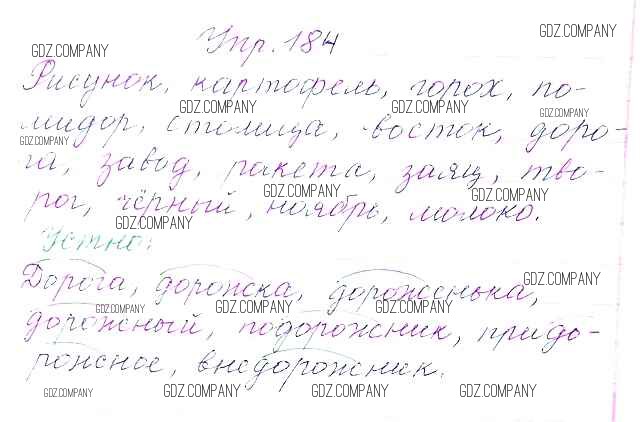 Упр. 184
GDZ.COMPANY
GDZ.COMPANY
Рисунок, картофель, горох, по-
GDZ.COMPANY
GDZ.COMPANY
GDZ.COMPANY
мидор, столица, восток, доро-
GDZ.COMPANY
га, завод, ракета, заяц, тво-
GDZ.COMPANY
GDZ.COMPANY
рог, чёрный, ноябрь, молоко.
GDZ.COMPANY
Устно:
Дорога, дорожка, дороженька,
GDZ.COMPANY
GDZ.COMPANY
GDZ.COMPANY
GDZ.COMPANY
дорожный, подорожник, придо-
рожное, внедорожник.
GDZ.COMPANY
GDZ.COMPANY
GDZ.COMPANY
GDZ.COMPANY